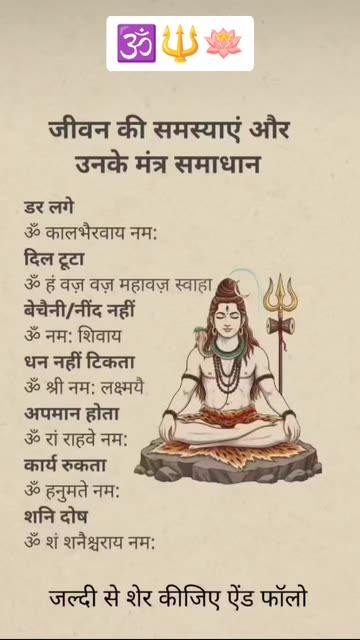 🕉️🔱🪷
जीवन की समस्याएं और
उनके मंत्र समाधान
डर लगे
ॐ कालभैरवाय नम:
दिल टूटा
ॐ हं वज़्र वज़्र महावज़्र स्वाहा
बेचैनी/नींद नहीं
ॐ नम: शिवाय
धन नहीं टिकता
ॐ श्री नम: लक्ष्मयै
अपमान होता
ॐ रां राहवे नम:
कार्य रुकता
ॐ हनुमते नम:
शनि दोष
ॐ शं शनैश्चराय नम:
जल्दी से शेर कीजिए ऐंड फॉलो